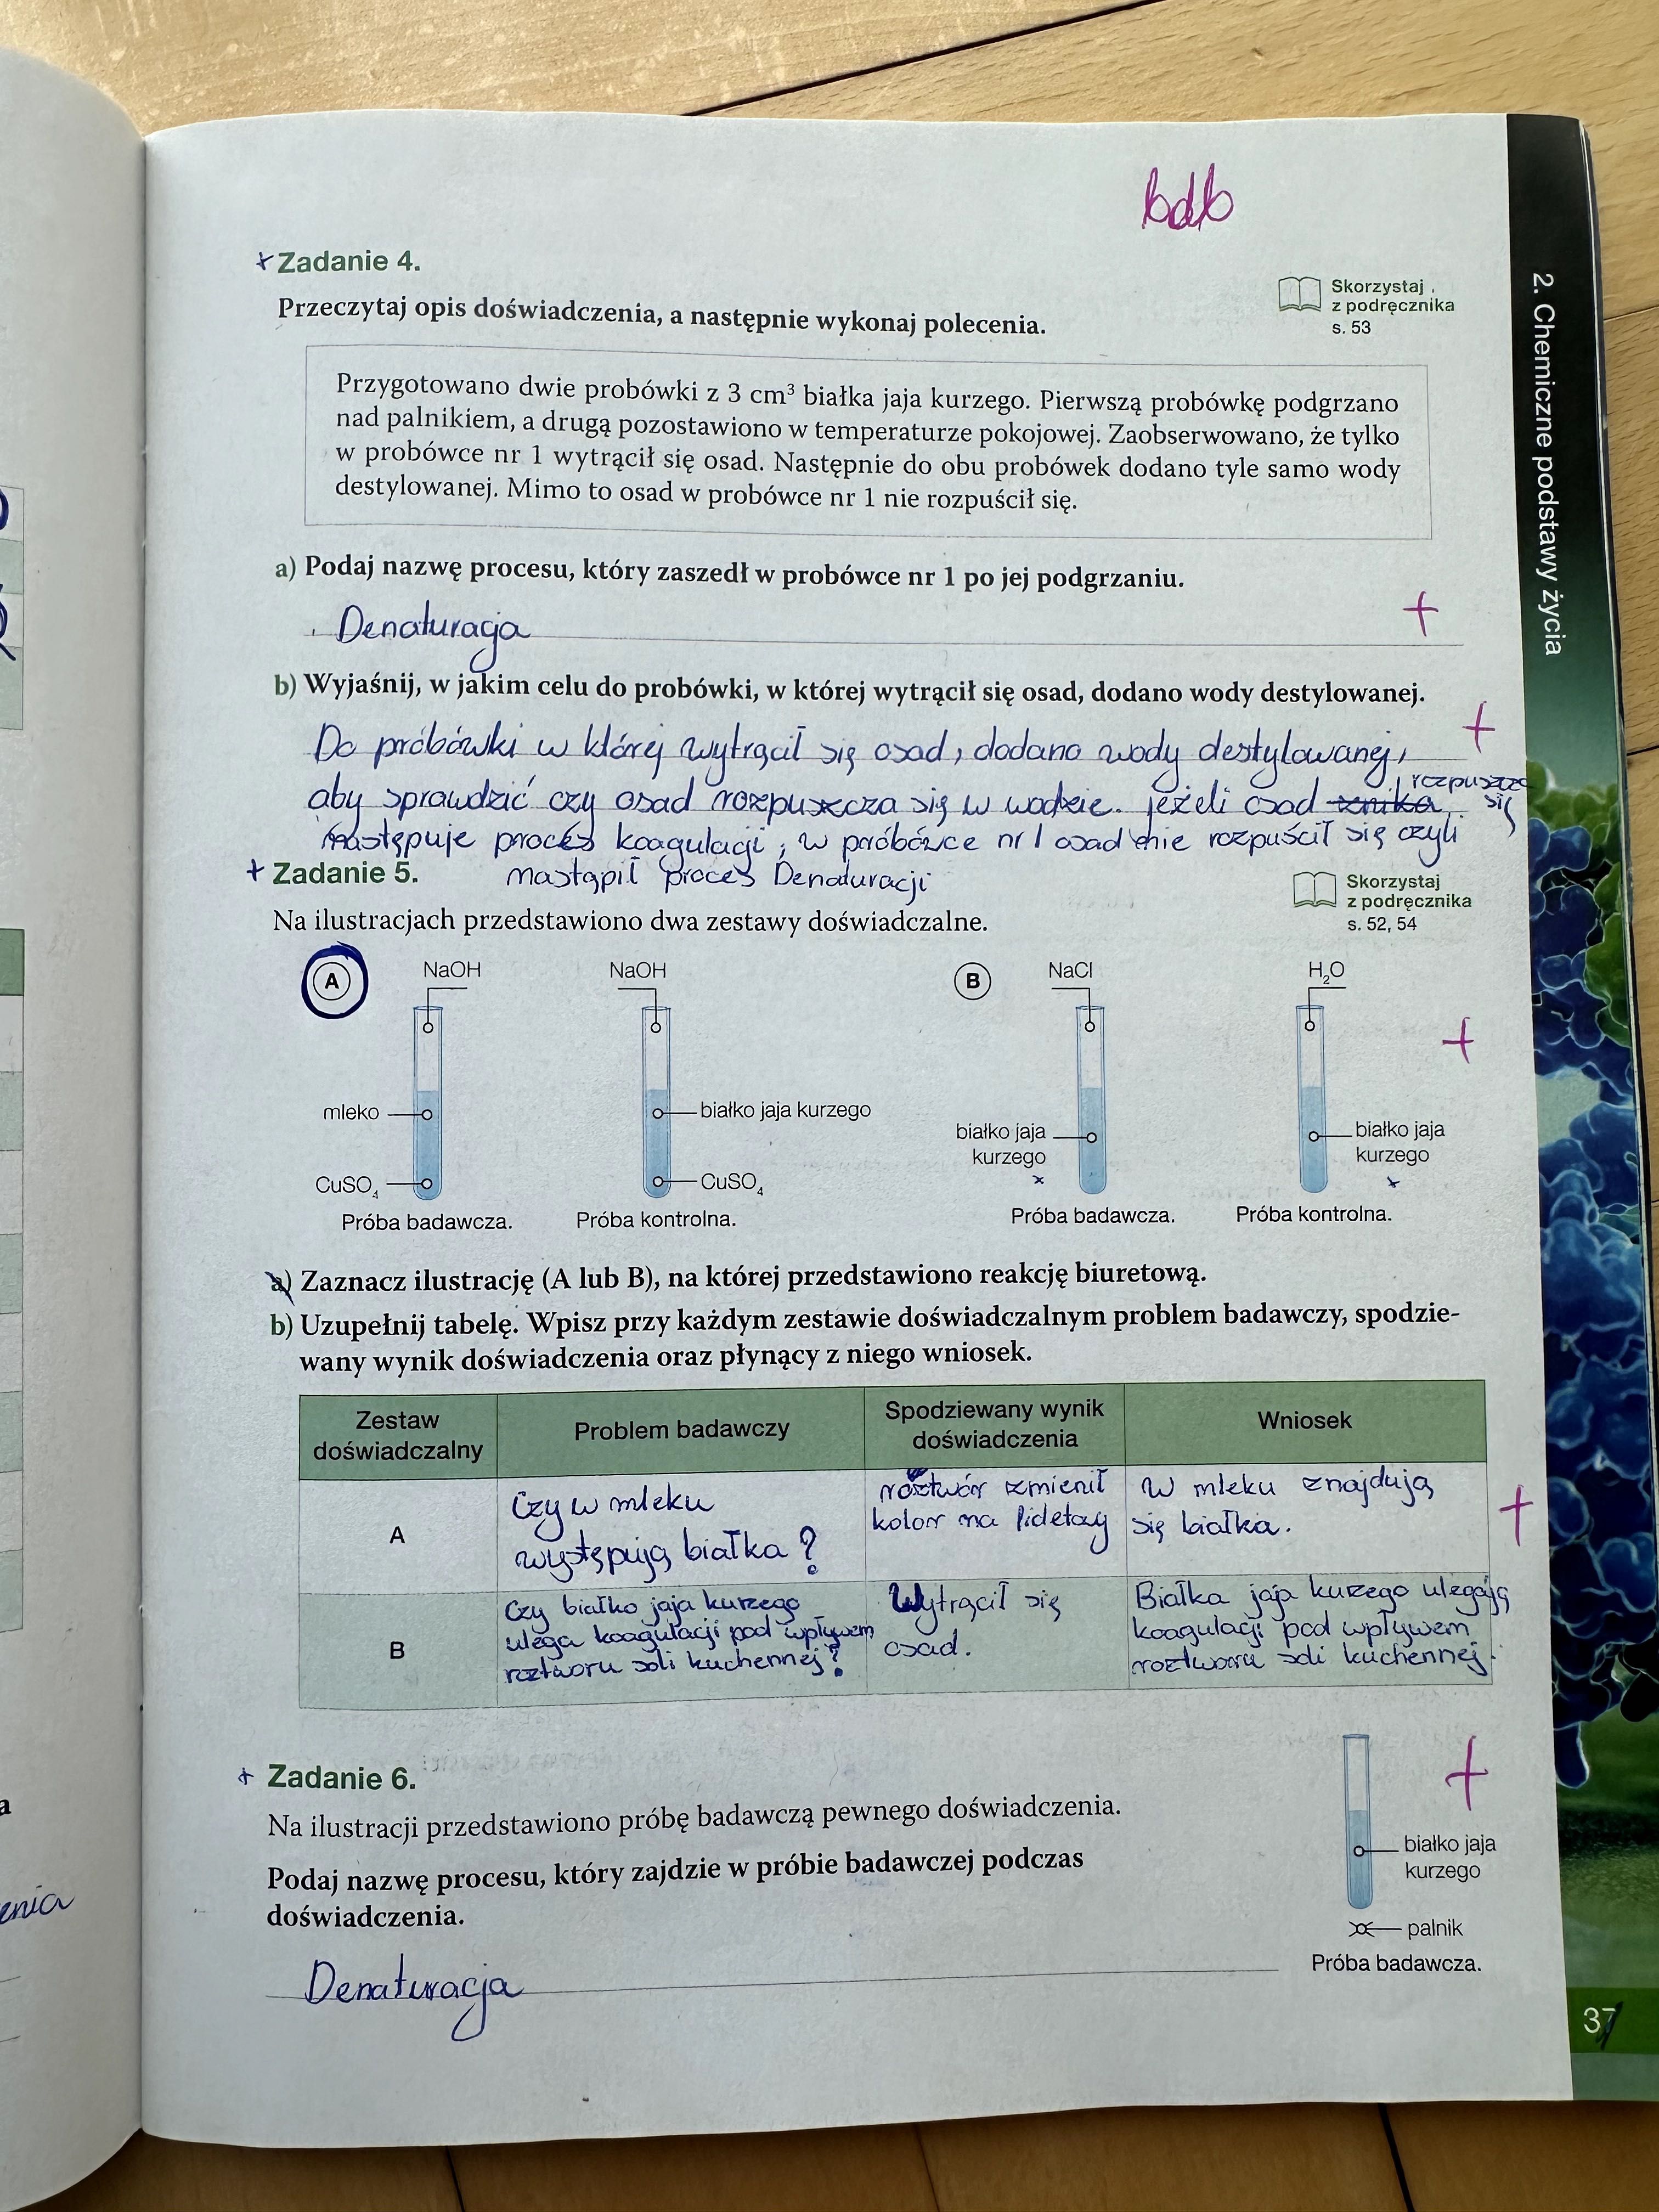 bdb
Zadanie 4.
Skorzystaj
z podręcznika
s. 53
Przeczytaj opis doświadczenia, a następnie wykonaj polecenia.
Przygotowano dwie probówki z 3 cm³ białka jaja kurzego. Pierwszą probówkę podgrzano
nad palnikiem, a drugą pozostawiono w temperaturze pokojowej. Zaobserwowano, że tylko
w probówce nr 1 wytrącił się osad. Następnie do obu probówek dodano tyle samo wody
destylowanej. Mimo to osad w probówce nr 1 nie rozpuścił się.
a) Podaj nazwę procesu, który zaszedł w probówce nr 1 po jej podgrzaniu.
Denaturacja +
b) Wyjaśnij, w jakim celu do probówki, w której wytrącił się osad, dodano wody destylowanej.
Do próbówki w której wytrącił się osad, dodano wody destylowanej, +
aby sprawdzić czy osad rozpuszcza się w wodzie. jeżeli osad znika rozpuszcza się
następuje proces koagulacji, w próbówce nr 1 osad nie rozpuścił się czyli
nastąpił proces Denaturacji
+ Zadanie 5.
Skorzystaj
z podręcznika
s. 52, 54
Na ilustracjach przedstawiono dwa zestawy doświadczalne.
A NaOH NaOH B NaCl H₂O
+
mleko białko jaja kurzego białko jaja kurzego białko jaja kurzego
CuSO₄ CuSO₄
Próba badawcza. Próba kontrolna. Próba badawcza. Próba kontrolna.
a) Zaznacz ilustrację (A lub B), na której przedstawiono reakcję biuretową.
b) Uzupełnij tabelę. Wpisz przy każdym zestawie doświadczalnym problem badawczy, spodzie-
wany wynik doświadczenia oraz płynący z niego wniosek.
Zestaw doświadczalny Problem badawczy Spodziewany wynik doświadczenia Wniosek
A
Czy w mleku
występują białka?
roztwór zmienił
kolor na
W mleku znajdują
się białka.
+
B
Czy białko jaja kurzego
ulega koagulacji pod wpływem
roztworu soli kuchennej?
Wytrącił się
osad.
Białka jaja kurzego ulegają
koagulacji pod wpływem
roztworu soli kuchennej.
+ Zadanie 6.
+
Na ilustracji przedstawiono próbę badawczą pewnego doświadczenia.
Podaj nazwę procesu, który zajdzie w próbie badawczej podczas
doświadczenia.
białko jaja
kurzego
palnik
Próba badawcza.
Denaturacja
2. Chemiczne podstawy życia
37
enia